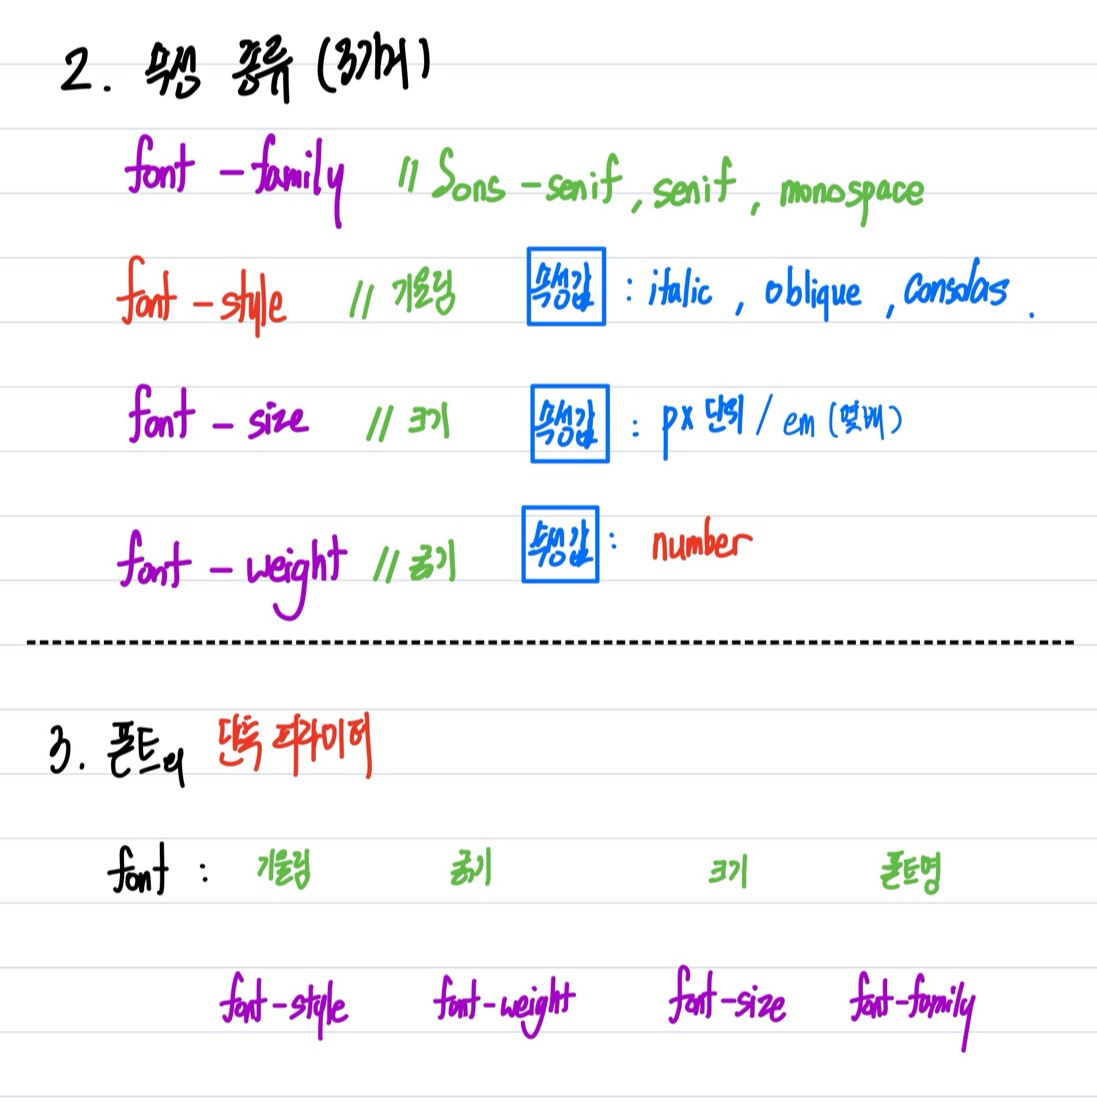 2. 속성 종류 (3가지)
font-family // Sans-serif, serif, monospace
font-style // 기울림 속성값 : italic, oblique, consolas.
font-size // 크기 속성값 : px 단위 / em (몇배)
font-weight // 굵기 속성값 : number
3. 폰트의 단축 프라이머리
font : 기울림 굵기 크기 폰트명
font-style font-weight font-size font-family